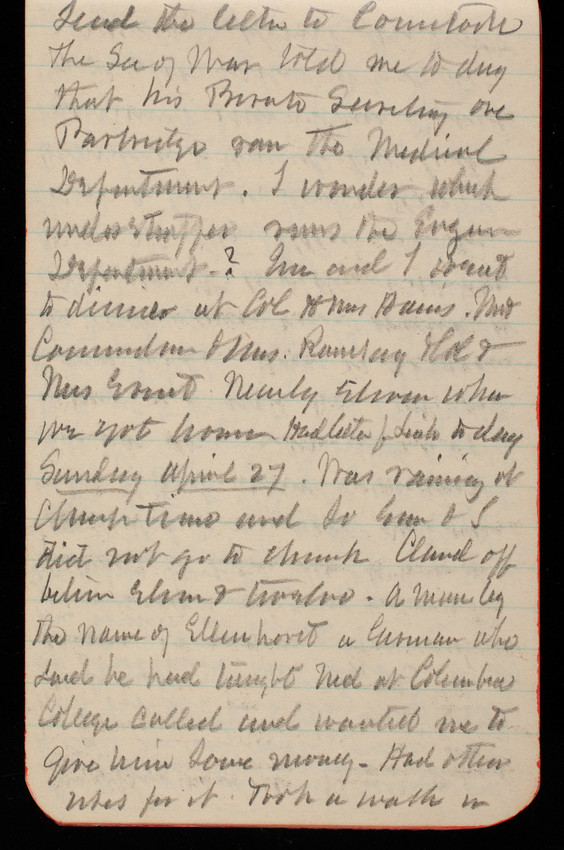 Send the letter to Comstock
The Sec of War told me to day
that his Private Secretary one
Partridge ran the Medical
Department. I wonder which
understrapper runs the Engin
Department-? Em and I went
to dinner at Col & Mrs Hains. Met
Commdr & Mrs. Ramsay &
Mrs Nearly Eleven when
we got home Had letter f to day
Sunday April 27. Was raining at
Church time and so Em & I
did not go to church Cleared off
between Eleven & twelve - A man by
the name of Ellenhorst a German who
said he had taught Ned at Columbia
College called and wanted me to
give him some money - Had other
uses for it. Took a walk in